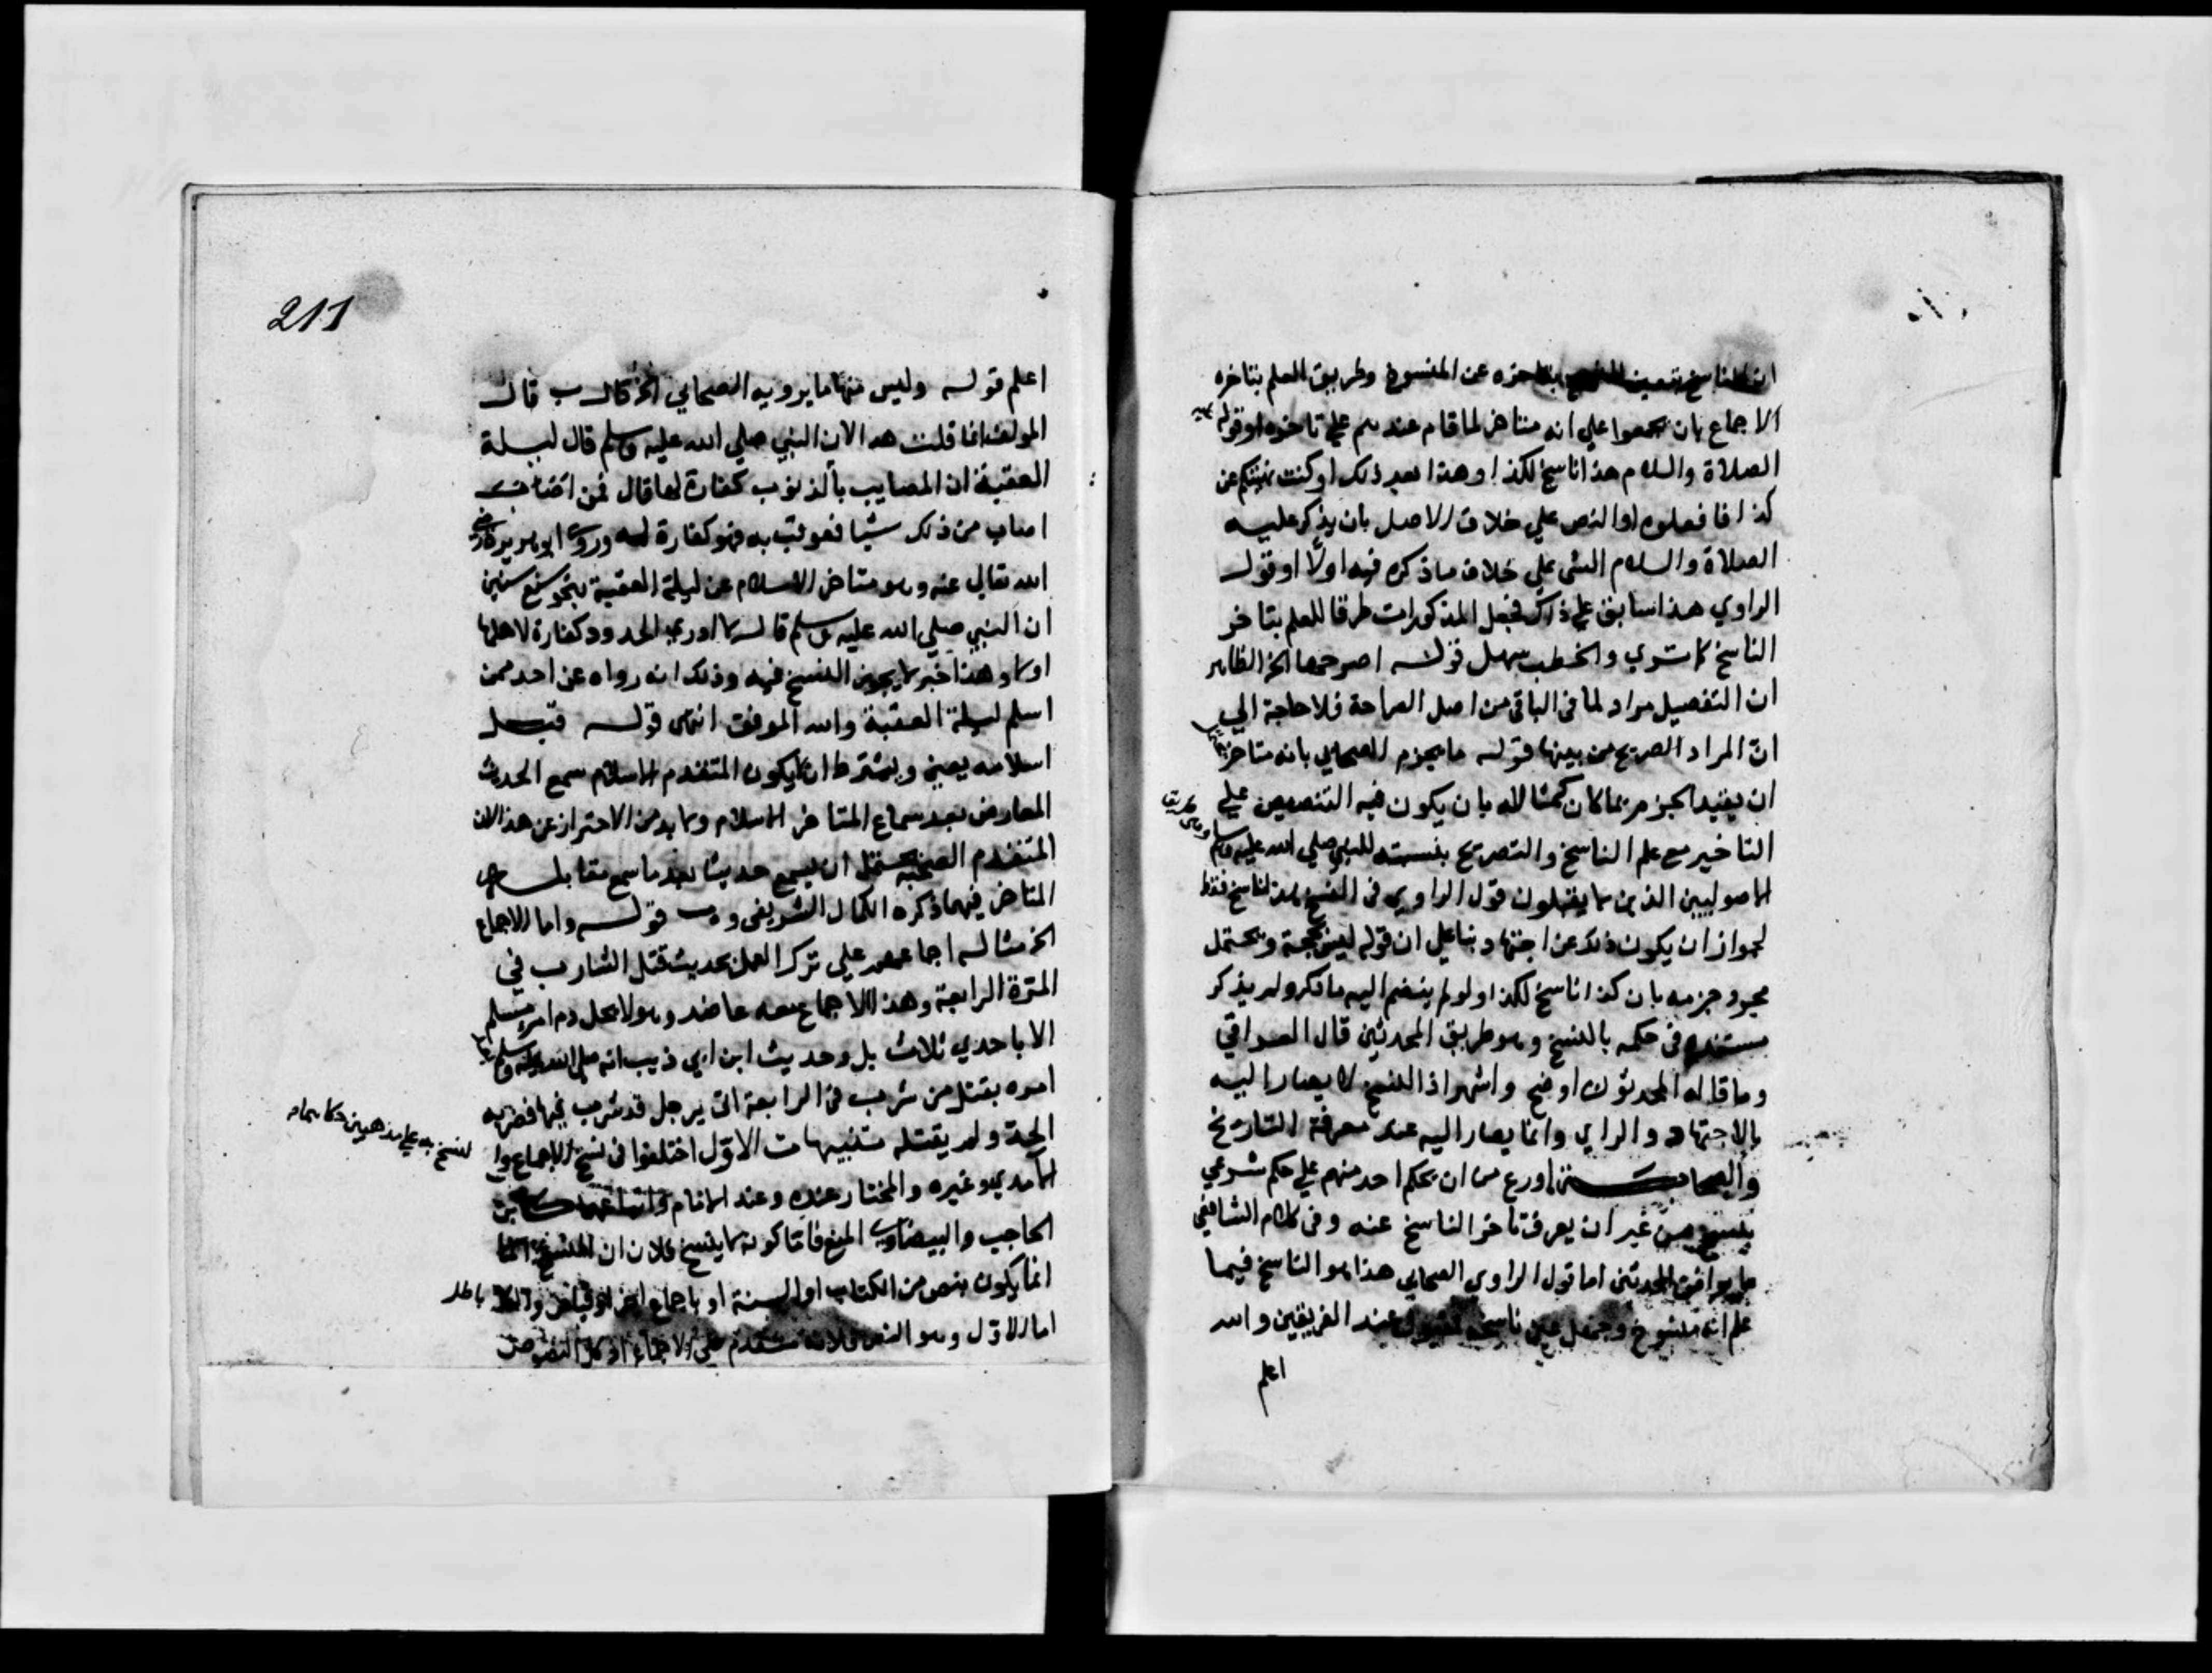 ان الناسخ يتعين بتاخره عن المنسوخ وطريق العلم بتاخره
الاجماع بان يجمعوا علي انه متاخر لما قام عندهم علي تاخره او قوله عليه
الصلاة والسلام هذا ناسخ لكذا او هذا بعد ذلك او كنت نهيتكم عن
كذا فافعلوه او النص علي خلاف الاصل بان يذكر عليه
الصلاة والسلام الشي علي خلاف ما ذكره فيه اولا او قول
الراوي هذا سابق علي ذاك فجعل المذكورات طرقا للعلم بتاخر
الناسخ كما تري والخطب سهل قوله اصرحها الخ الظاهر
ان التفصيل مراد لما في الباقي من اصل الصراحة فلا حاجة الي
ان المراد الصريح من بينها قوله ما يجزم الصحابي بانه متاخر
ان يفيد الجزم بما كان كمثاله بان يكون فيه التنصيص علي
التاخير مع علم الناسخ والتصريح بنسبته للنبي صلي الله عليه وسلم
الاصوليين الذين لا يقبلون قول الراوي في النسخ هذا ناسخ فقط
لجواز ان يكون ذلك عن اجتهاد بنا علي ان قوله ليس بحجة ويحتمل
مجرد جزمه بان كذا ناسخ لكذا ولو لم ينضم اليه ما ذكر ولم يذكر
مستنده في حكمه بالنسخ وهو طريق المحدثين قال العراقي
وما قاله المحدثون اوضح واشهر اذ النسخ لا يصار اليه
بالاجتهاد والراي وانما يصار اليه عند معرفة التاريخ
والصحابة اورع من ان يحكم احد منهم علي حكم شرعي
بنسخ من غير ان يعرف تاخر الناسخ عنه وفي كلام الشافعي
ما يوافق المحدثين اما قول الراوي الصحابي هذا هو الناسخ فيما
علم انه منسوخ وجهل عين ناسخه فمقبول عند الفريقين والله
اعلم
211
اعلم قوله وليس منها ما يرويه الصحابي الخ قال ب قال
المولف انما قلت هذا لان النبي صلي الله عليه وسلم قال ليلة
العقبة ان المصايب بالذنوب كفارة لها قال فمن
اصاب من ذلك شيا فعوقب به فهو كفارة له وروي ابو هريرة رضي
الله تعالي عنه وهو متاخر الاسلام عن ليلة العقبة بنحو سبع سنين
ان النبي صلي الله عليه وسلم قال لا ادري الحدود كفارة لاهلها
او لا وهذا خبر لا يجوز النسخ فيه وذلك انه رواه عن احد ممن
اسلم ليلة العقبة والله الموفق انتهي قوله قبل
اسلامه يعني ويشترط ان لا يكون المتقدم الاسلام سمع الحديث
المعارض بعد سماع المتاخر الاسلام ولا بد من الاحتراز عن هذا لان
المتقدم الصحبة يحتمل ان يسمع حديثا بعد ما سمع مقابله
المتاخر فيما ذكره الكمال الشريفي وب قوله واما الاجماع
الخ مثاله اجماعهم علي ترك العمل بحديث قتل الشارب في
المرة الرابعة وهذا الاجماع معه عاضد وهو لا يحل دم امرء مسلم
الا باحدي ثلاث بل وحديث ابن ابي ذيب انه صلي الله عليه وسلم
امره بقتل من شرب في الرابعة اتي برجل قد شرب فيها فضربه
الحد ولم يقتله تنبيهات الاول اختلفوا في نسخ الاجماع وا
لنسخ به علي مذهبين حكاهما
الآمدي وغيره والمختار عنده وعند الامام واتباعهما كابن
الحاجب والبيضاوي المنع فاما كونه لا ينسخ فلان النسخ
انما يكون بنص من الكتاب او السنة او باجماع اخر او قياس والكل باطل
اما الاول وهو النص فلانه متقدم علي الاجماع اذ كل النصوص